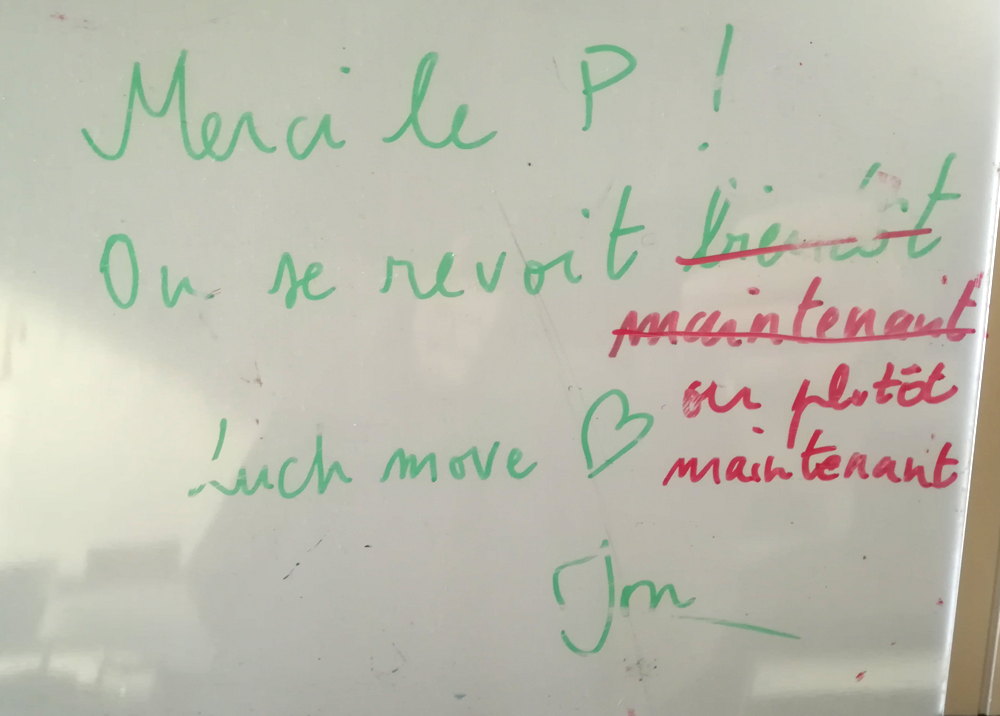 Merci le P !
On se revoit bientôt
maintenant
ou plutôt
maintenant
move
Jon